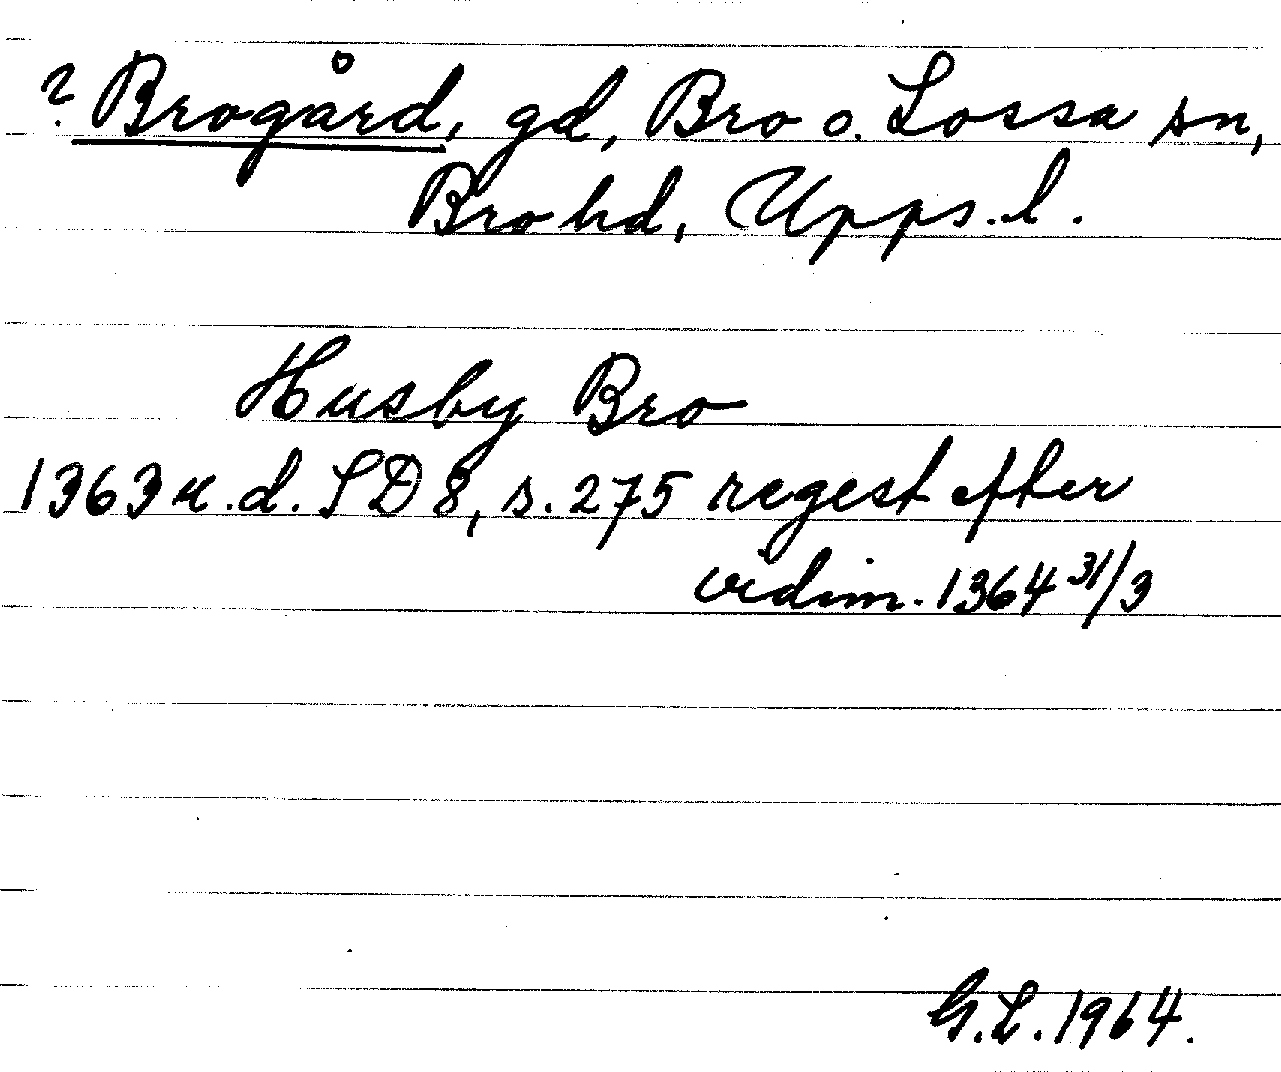 ? Brogård, gd, Bro o. Lossa sn,
Bro hd, Upps. l.
Husby Bro
1363 u.d. SD 8, s. 275 regest efter
vidim. 1364 31/3
G.L. 1964.